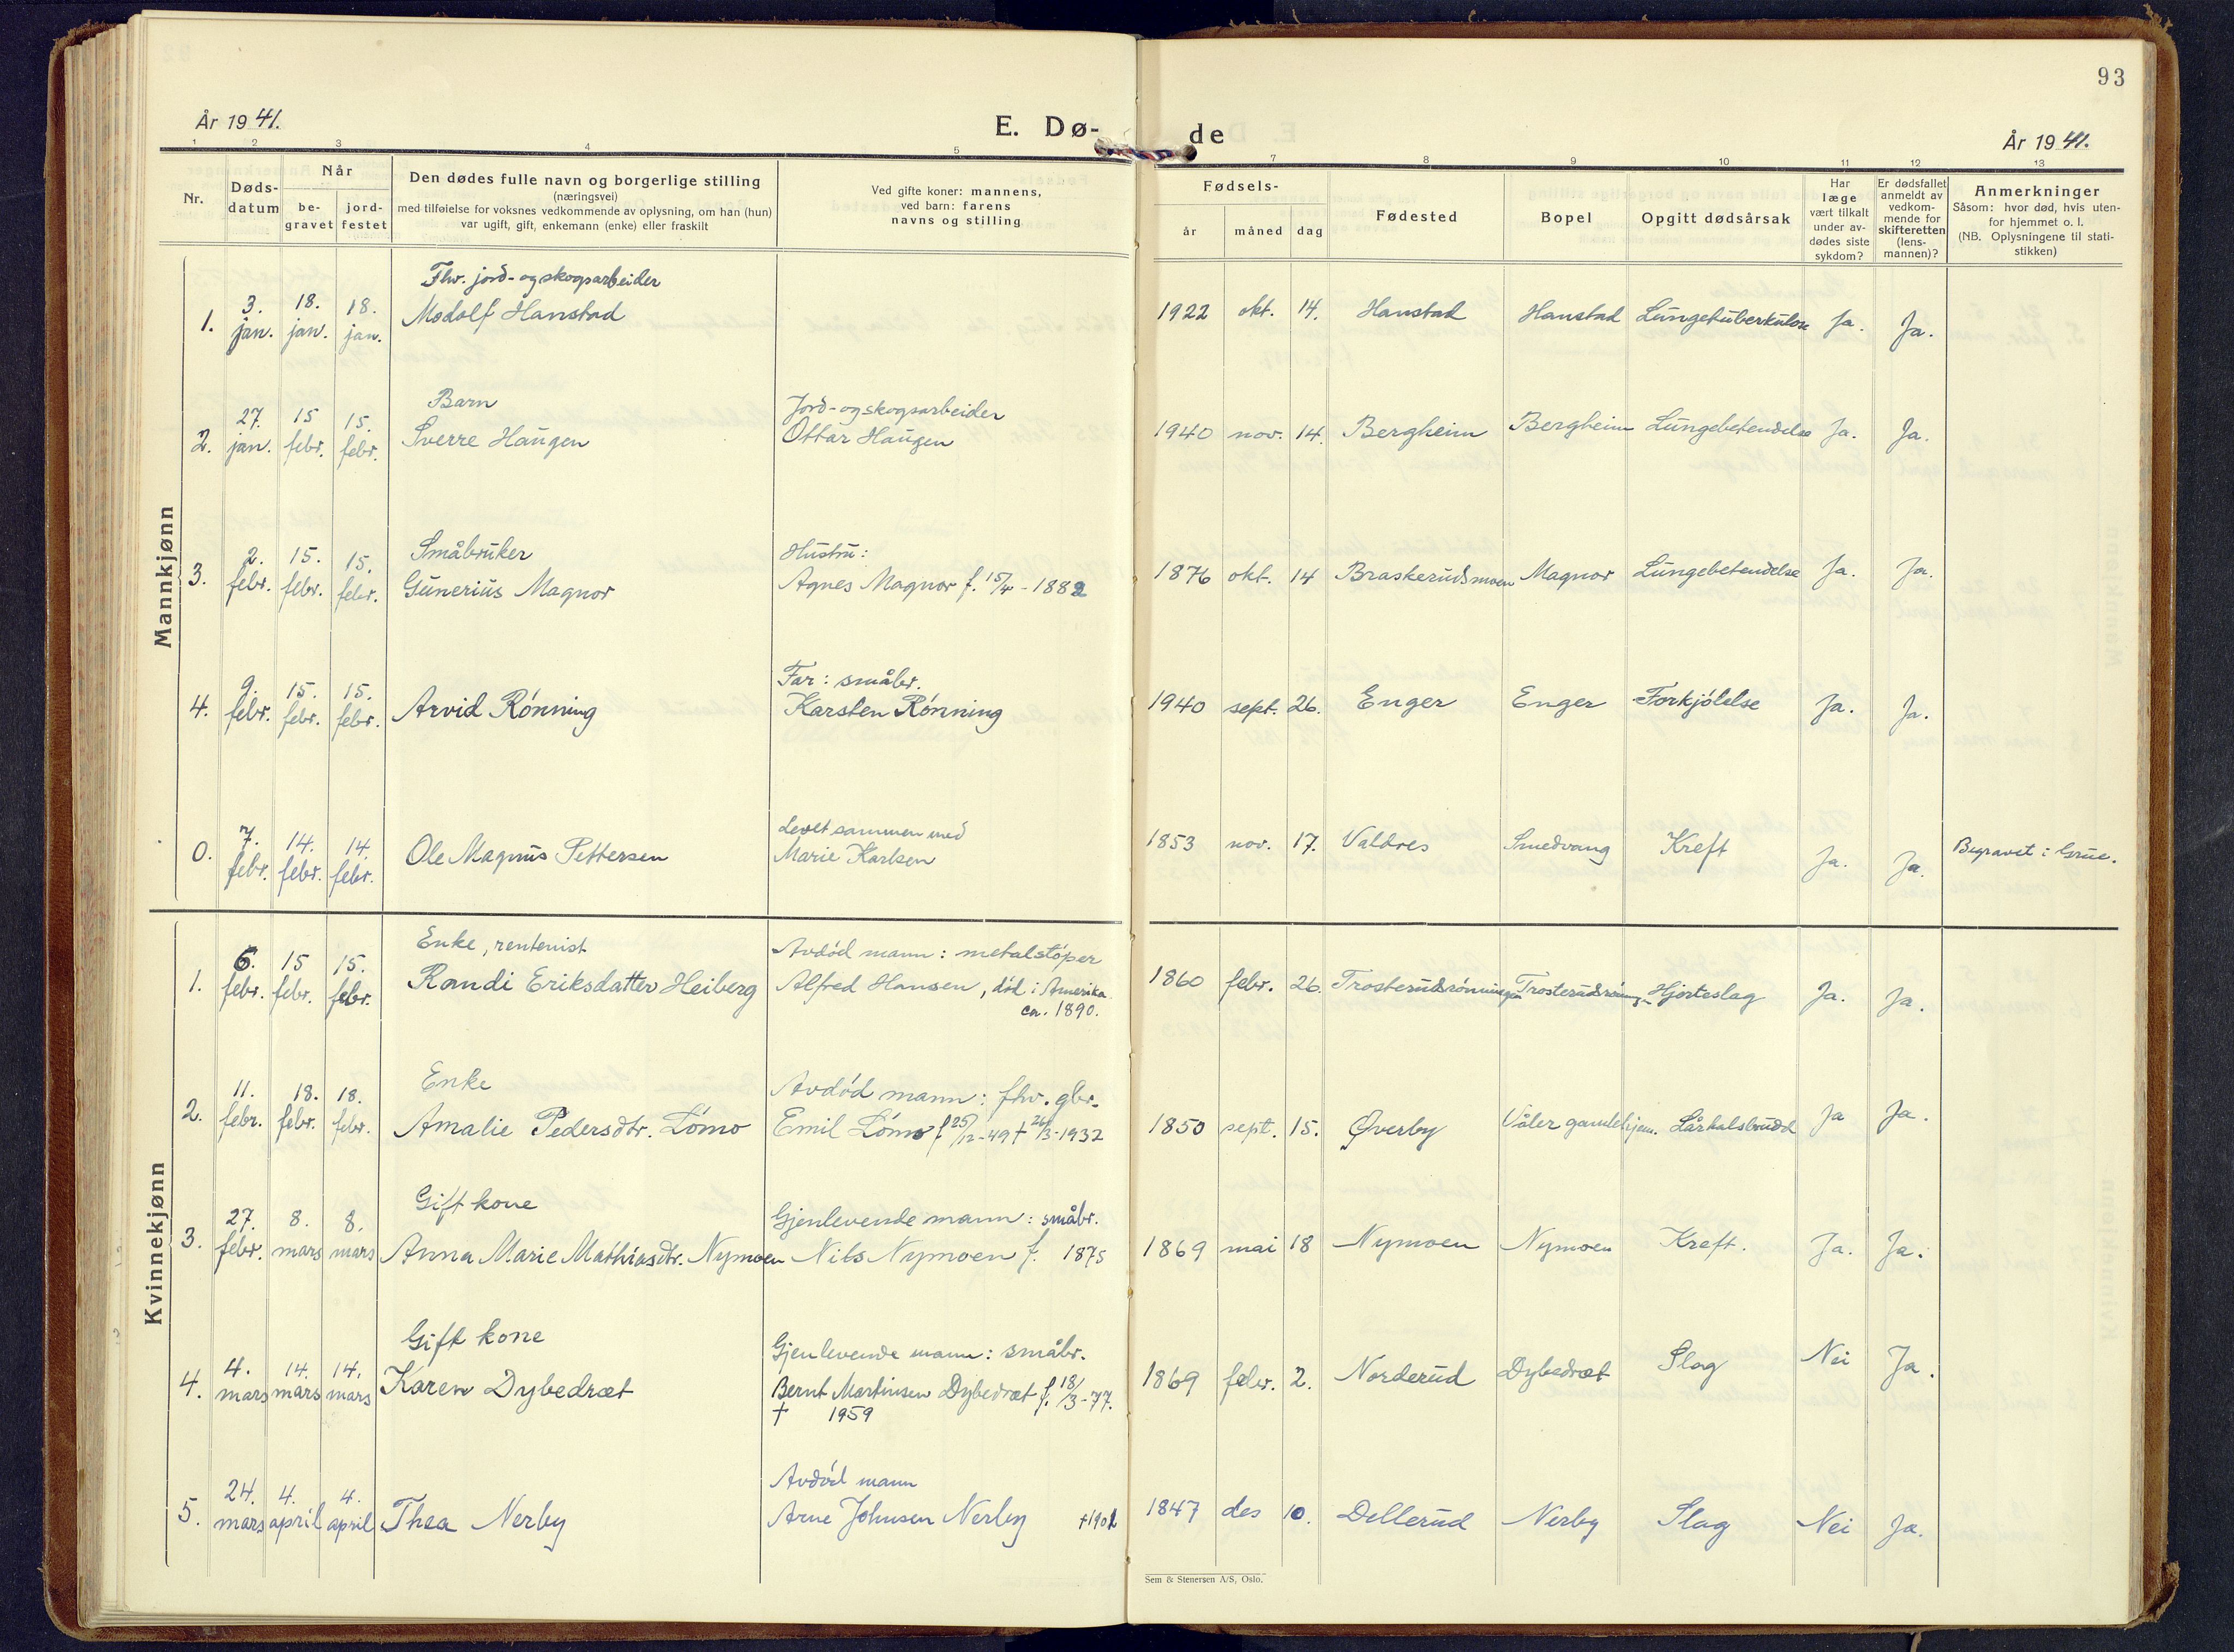 93
År 1941.
E. Dø-
de
År 1941.
1 2 3 4 5 7 8 9 10 11 12 13
Nr.
Døds-
datum
Når
be-
gravet
jord-
festet
Den dødes fulle navn og borgerlige stilling
(næringsvei)
med tilføielse for voksnes vedkommende av oplysning, om han (hun)
var ugift, gift, enkemann (enke) eller fraskilt
Ved gifte koner: mannens,
ved barn: farens
navns og stilling
Fødsels-
år måned dag
Fødested
Bopel
Opgitt dødsårsak
Har
læge
vært tilkalt
under av-
dødes siste
sykdom?
Er dødsfallet
anmeldt av
vedkom-
mende for
skifteretten
(lens-
mannen)?
Anmerkninger
Såsom: hvor død, hvis uten-
for hjemmet o. l.
(NB. Oplysningene til stati-
stikken)
Mannkjønn
Fhv. jord- og skogsarbeider
1. 3. jan. 18. jan. 18. jan. Modolf Hanstad 1922 okt. 14. Hanstad Hanstad Lungetuberkulose Ja. Ja.
Barn Jord- og skogsarbeider
2. 27. jan. 15 febr. 15. febr. Sverre Haugen Ottar Haugen 1940 nov. 14. Bergheim Bergheim Lungebetendelse Ja. Ja.
Småbruker Hustru:
3. 2. febr. 15. febr. 15. febr. Gunerius Magnor Agnes Magnor f. 15/4 - 1882 1876 okt. 14 Braskerudsmoen Magnor Lungebetendelse Ja. Ja.
Far: småbr.
4. 9. febr. 15. febr. 15. febr. Arvid Rönning Karsten Rönning 1940 sept. 26. Enger Enger Forkjölelse Ja. Ja.
Levet sammen med
0. 7. febr. 14. febr. 14. febr. Ole Magnus Pettersen Marie Karlsen 1853 nov. 17. Valdres Smedvang Kreft Ja. Ja. Begravet i Grue.
Kvinnekjønn
Enke, rentenist Avdöd mann: metalstöper
1. 6. febr. 15 febr. 15. febr. Randi Eriksdatter Heiberg Alfred Hansen, död i Amerika 1860 febr. 26. Trosterudsrönningen Trosterudsrönng. Hjerteslag Ja. Ja.
ca. 1890.
Enke Avdöd mann: fhv. gbr.
2. 11. febr. 18. febr. 18. febr. Amalie Pedersdtr. Lömo Emil Lömo f 25/12-49 † 24/3-1932 1850 sept. 15. Øverby Våler gamlehjem. Lårhalsbrudd Ja Ja.
Gift kone Gjenlevende mann: småbr.
3. 27. febr. 8. mars 8. mars Anna Marie Mathiasdtr. Nymoen Nils Nymoen f. 1875 1869 mai 18 Nymoen Nymoen Kreft. Ja. Ja.
Gift kone Gjenlevende mann: småbr.
4. 4. mars 14. mars 14. mars Karen Dybedræt Bernt Martinsen Dybedræt f. 18/3-77. 1869 febr. 2. Norderud Dybedræt Slag Nei Ja.
† 1959
Avdöd mann
5. 24. mars 4. april 4. april Thea Nerby Arne Johnsen Nerby 1847 des 10. Dellerud Nerby Slag Nei Ja.
Sem & Stenersen A/S, Oslo.